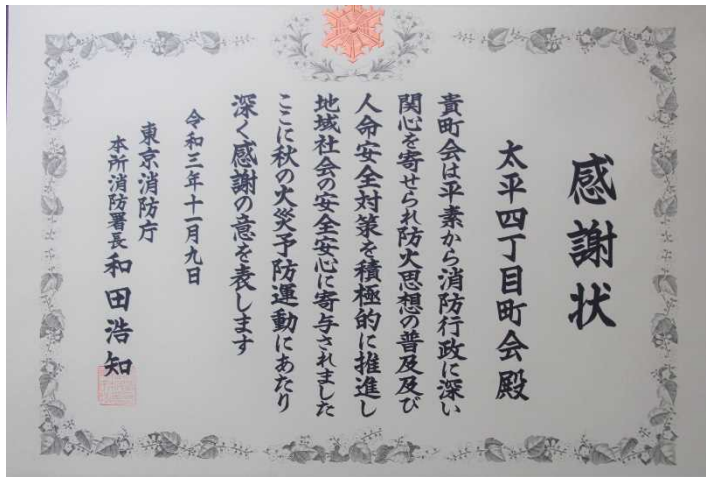 感謝状
太平四丁目町会殿
貴町会は平素から消防行政に深い
関心を寄せられ防火思想の普及及び
人命安全対策を積極的に推進し
地域社会の安全安心に寄与されました
ここに秋の火災予防運動にあたり
深く感謝の意を表します
令和三年十一月九日
東京消防庁
本所消防署長 和田浩知